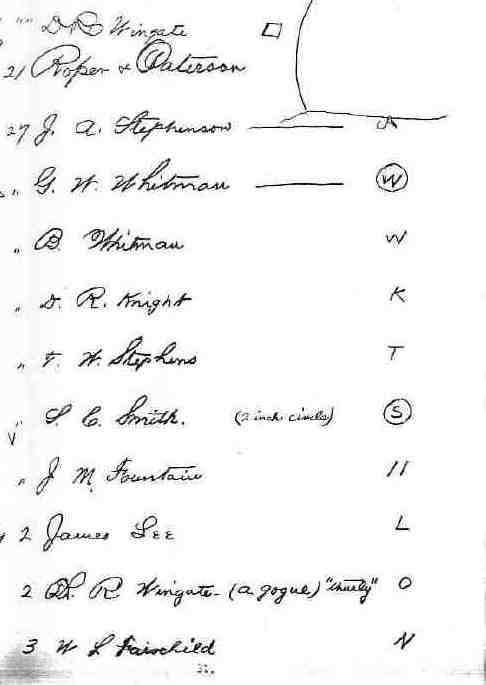 " " D R Wingate
21 Roper & Paterson
27 J. A. Stephenson A
" G. W. Whitman W
" B. Whitman W
" D. R. Knight K
" F. W. Stephens T
" S. C. Smith. (2 inch circle) S
V
" J M. Fountain 11
2 James Lee L
2 R Wingate - (a gogue) O
3 W L Fairchild N
31.